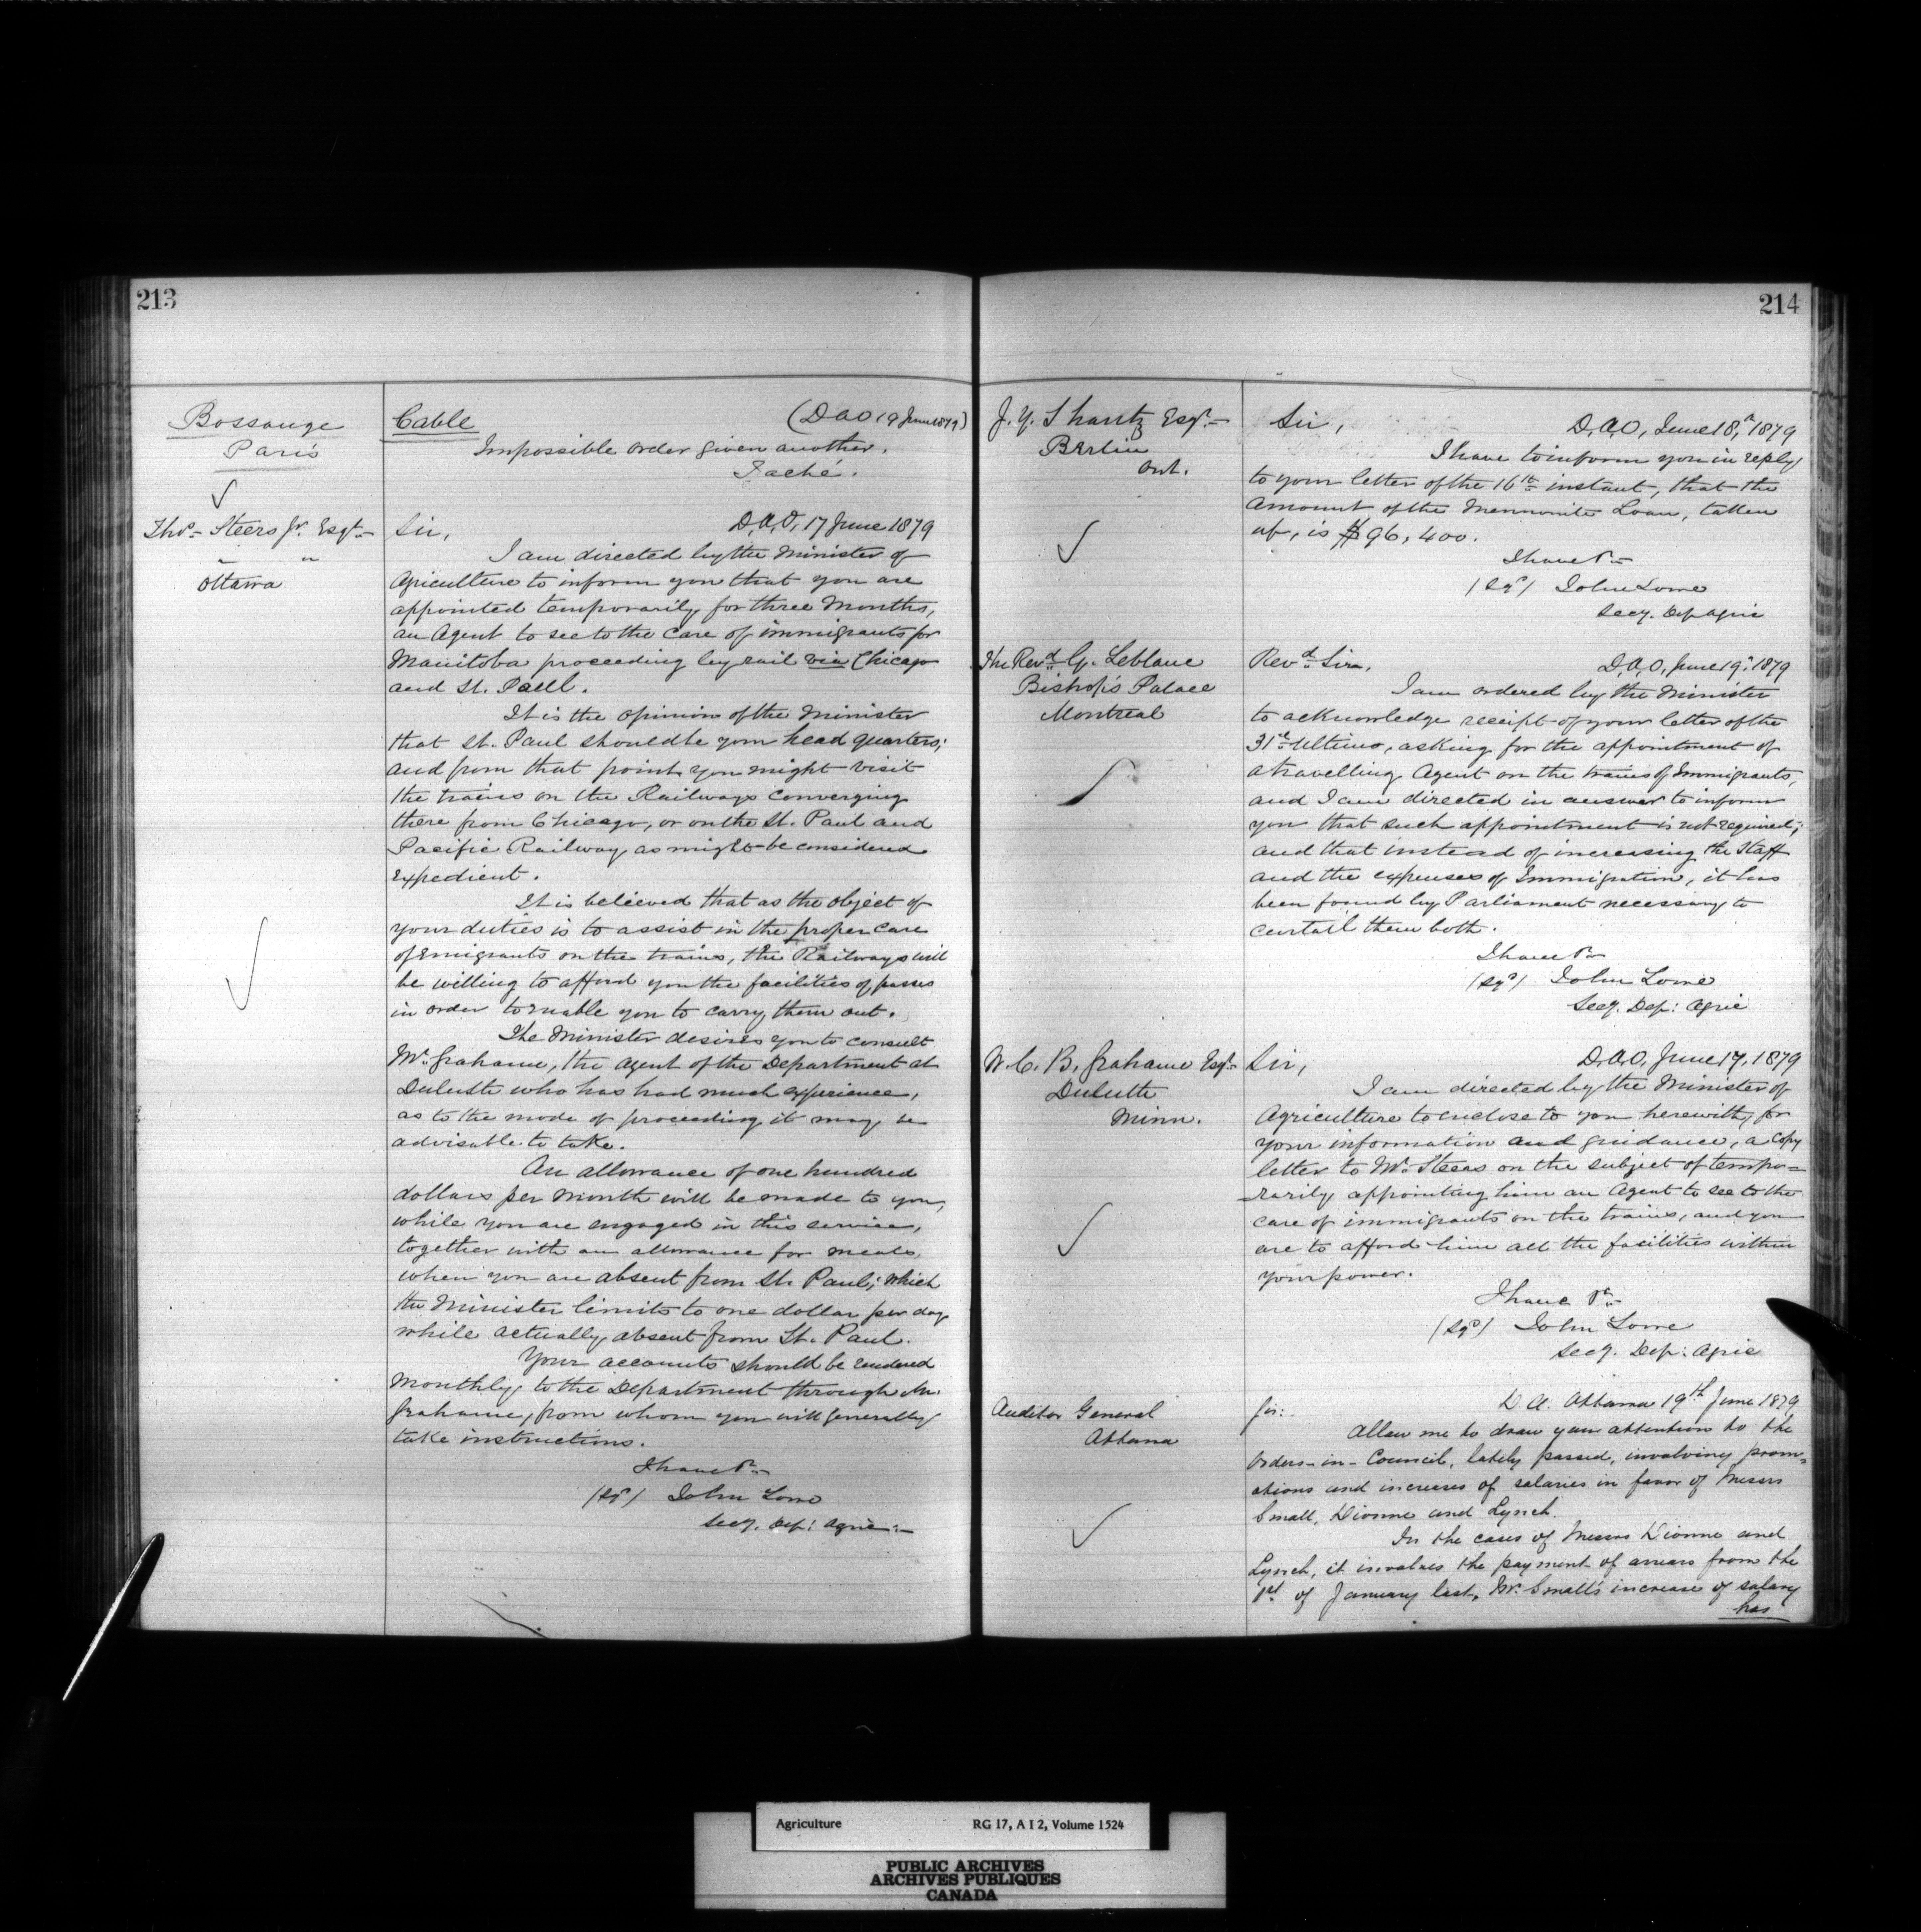 213
Bossange
Paris
Cable (D A O 19 June 1879)
Impossible order given another.
Taché.
Thos. Steers Jr. Esqr.
" "
Ottawa
Sir, D.A.O, 17 June 1879
I am directed by the Minister of
Agriculture to inform you that you are
appointed temporarily, for three Months,
an Agent to see to the care of immigrants for
Manitoba proceeding by rail via Chicago
and St. Paul.
It is the opinion of the Minister
that St. Paul should be your head quarters;
and from that point you might visit
the trains on the Railways converging
there from Chicago, or on the St. Paul and
Pacific Railway, as might be considered
expedient.
It is believed that as the object of
your duties is to assist in the proper care
of Emigrants on the trains, the Railways will
be willing to afford you the facilities of passes
in order to enable you to carry them out.
The Minister desires you to consult
Mr. Grahame, the Agent of the Department at
Duluth who has had much experience,
as to the mode of proceeding it may be
advisable to take.
An allowance of one hundred
dollars per Month will be made to you,
while you are engaged in this service,
together with an allowance for meals,
when you are absent from St. Paul; which
the Minister limits to one dollar per day
while actually absent from St. Paul.
Your accounts should be rendered
Monthly, to the Department through Mr.
Grahame, from whom you will generally
take instructions.
I have &c
(Sgd) John Lowe
Secy. Dep: Agric:
214
J. Y. Shantz Esqr.
Berlin
Ont.
Sir, D.A.O, June 18, 1879
I have to inform you in reply
to your letter of the 16th instant, that the
Amount of the Mennonite Loan, taken
up, is $96,400.
I have &c
(Sgd) John Lowe
Secy. Dep Agric
The Revd. G. Leblanc
Bishop's Palace
Montreal
Revd. Sir, D.A.O, June 19, 1879
I am ordered by the Minister
to acknowledge receipt of your letter of the
31st Ultimo, asking for the appointment of
a travelling Agent on the trains of Immigrants,
and I am directed in answer to inform
you that such appointment is not required;
and that instead of increasing the Staff
and the expenses of Immigration, it has
been found by Parliament necessary to
curtail them both.
I have &c
(Sgd) John Lowe
Secy. Dep: Agric
W. C. B. Grahame Esqr.
Duluth
Minn.
Sir, D.A.O, June 17, 1879
I am directed by the Minister of
Agriculture to enclose to you herewith, for
your information and guidance, a copy
letter to Mr. Steers on the subject of tempo=
=rarily appointing him an Agent to see to the
care of immigrants on the trains, and you
are to afford him all the facilities within
your power.
I have &c
(Sgd) John Lowe
Secy. Dep: Agric
Auditor General
Ottawa
Sir: D. A. Ottawa 19th June 1879
Allow me to draw your attention to the
Orders-in-Council, lately passed, involving prom-
otions and increases of salaries in favor of Messrs
Small, Dionne and Lynch.
In the cases of Messrs Dionne and
Lynch, it involves the payment of arrears from the
1st of January last, Mr. Small's increase of salary
has
Agriculture RG 17, A I 2, Volume 1524
PUBLIC ARCHIVES
ARCHIVES PUBLIQUES
CANADA